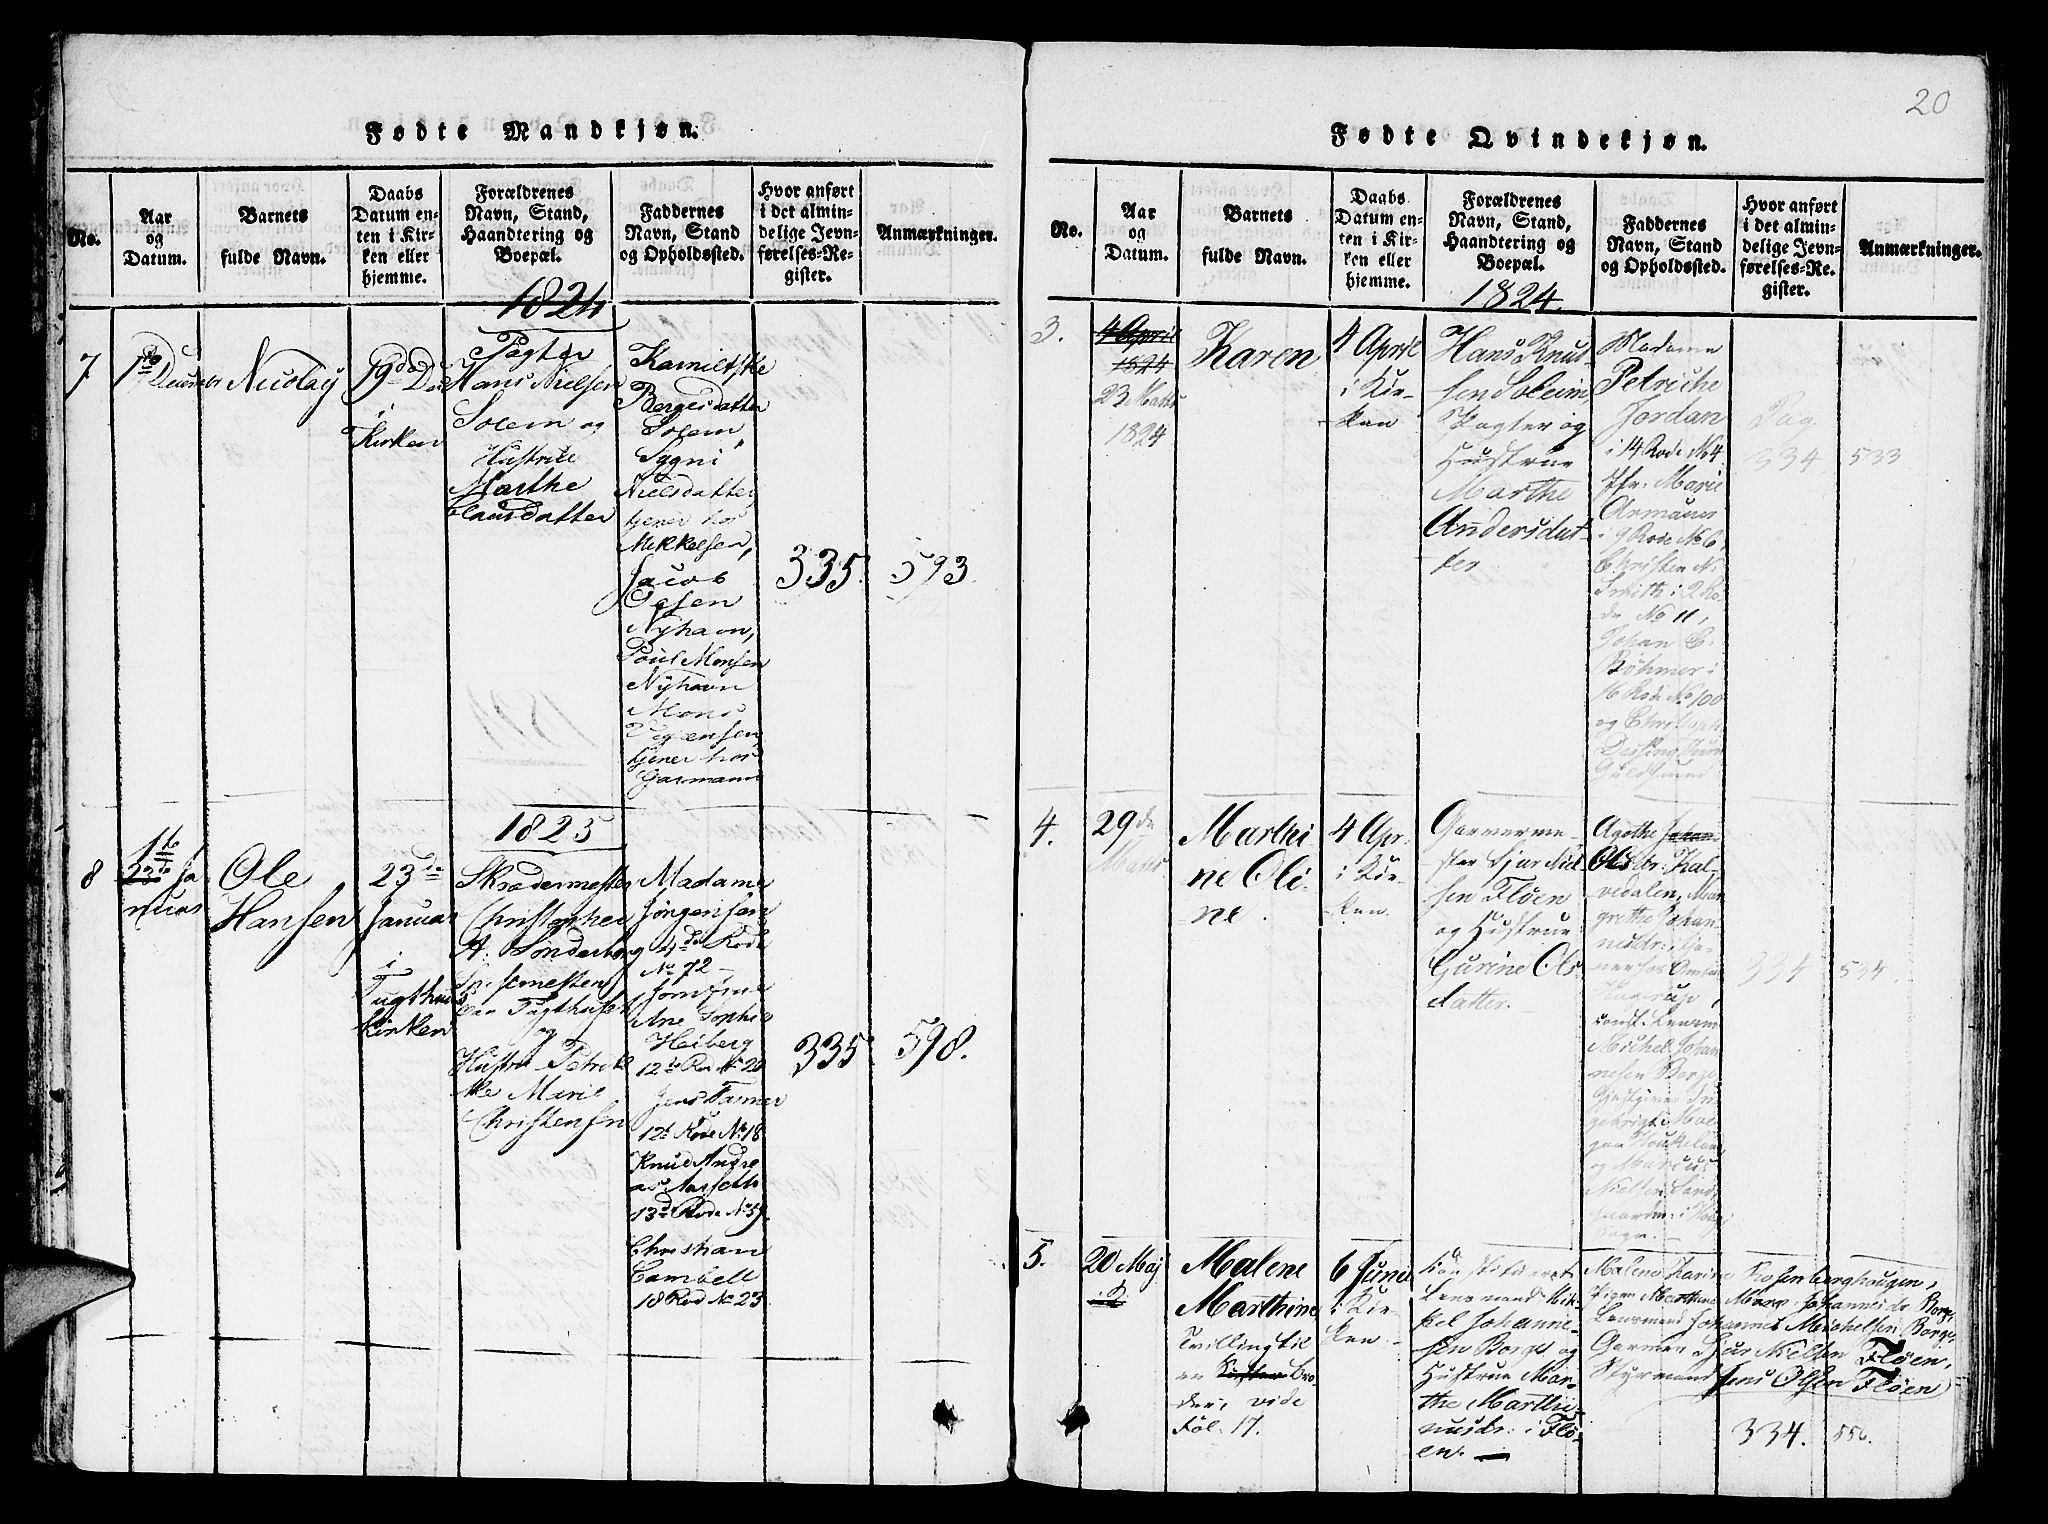 20
Fødte Mandkjøn.
No.
Aar
og
Datum.
Barnets
fulde Navn.
Daabs
Datum en-
ten i Kir-
ken eller
hjemme.
Forældrenes
Navn, Stand,
Haandtering og
Boepæl.
Faddernes
Navn, Stand
og Opholdssted.
Hvor anført
i det almin-
delige Jevn-
førelses-Re-
gister.
Anmærkninger.
1824
7
1ste Decembr
Nicolay
19de Dec
i
Kirken
Pagter
Hans Nielsen
Solem og
Hustrue
Marthe
Clausdatter
Bergesdatter
Solem
Sygni
Nielsdatter
tjener hos
Mekkelsen,
Jacob
Olsen
Nyhavn,
Poul Monsen
Nyhavn
Mons
tjener hos
Garmann
335.
593.
1825
8
1te
23de Ja
nuar
Ole
Hansen
23de
Januar
i
Tugthuus
Kirken
Skrædermester
Christopher
A. Sønderborg
Spisemester
Tugthuset
og
Hustru Petrik
ke Marie
Christensen
Madame
Jørgensen
4de Rode
No 72
Jomfrue
Ane Sophie
Heiberg
12te Rod No 20
Jens Fasmer
12t Rode No 18
Knud Andre
as Aarseth
13d Rode No 59
Christian
Cambell
18 Rod No 23
335
598.
Fødte Qvindekjøn.
No.
Aar
og
Datum.
Barnets
fulde Navn.
Daabs
Datum en-
ten i Kir-
ken eller
hjemme.
Forældrenes
Navn, Stand,
Haandtering og
Boepæl.
Faddernes
Navn, Stand
og Opholdssted.
Hvor anført
i det almin-
delige Jevn-
førelses-Re-
gister.
Anmærkninger.
1824
3.
4 April
1824
23 Marts
1824
Karen
4 April
i Kir-
ken
Hans Knud-
sen Soleim
Pagter og
Hustrue
Marthe
Andersdat-
ter
Madame
Petriche
Jordan
i 14 Rode No 4
Jfr. Marie
i 9 Rode No 6,
Christen N.
Smith i 2 Ro-
de No 11,
Johan C.
Bøhmer i
16 Rode No 100
og Christoph
Guldsmed
Pag.
334.
533
4.
29de
Mars
Marthi
ne Oli-
ne.
4 Apr.
i Kir-
ken.
Garverme-
ster Sjur Niel
sen Fløen
og Hustrue
Gurine Ols-
datter.
Agothe Johan-
Olsdr: Kal-
vedalen, Mar
grethe Johan
nesdr: tje-
ner hos
const. Lensm
Michel Johan
nesen Borge
Gjestgiver In
gebrigt
og Marcus
Nielsen
334
534.
5.
20 Maj
Malene
Marthine
Tvilling til
en Søster Bro-
der, vide
Fol. 17.
6 Junie
i Kir-
ken
Constitueret
Lensmand Mik-
kel Johanne-
sen Borge og
Hustrue Mar-
the Marthi-
nusdr: i Flø-
en.
Malene Karine Rosenberghaugen,
Pigen Marthine Marie Johannesdr Borge,
Lensmand Johannes Michelsen Borge,
Garver Sjur Nielsen Fløen,
Styrmand Jens Olsen Fløen
334.
556.